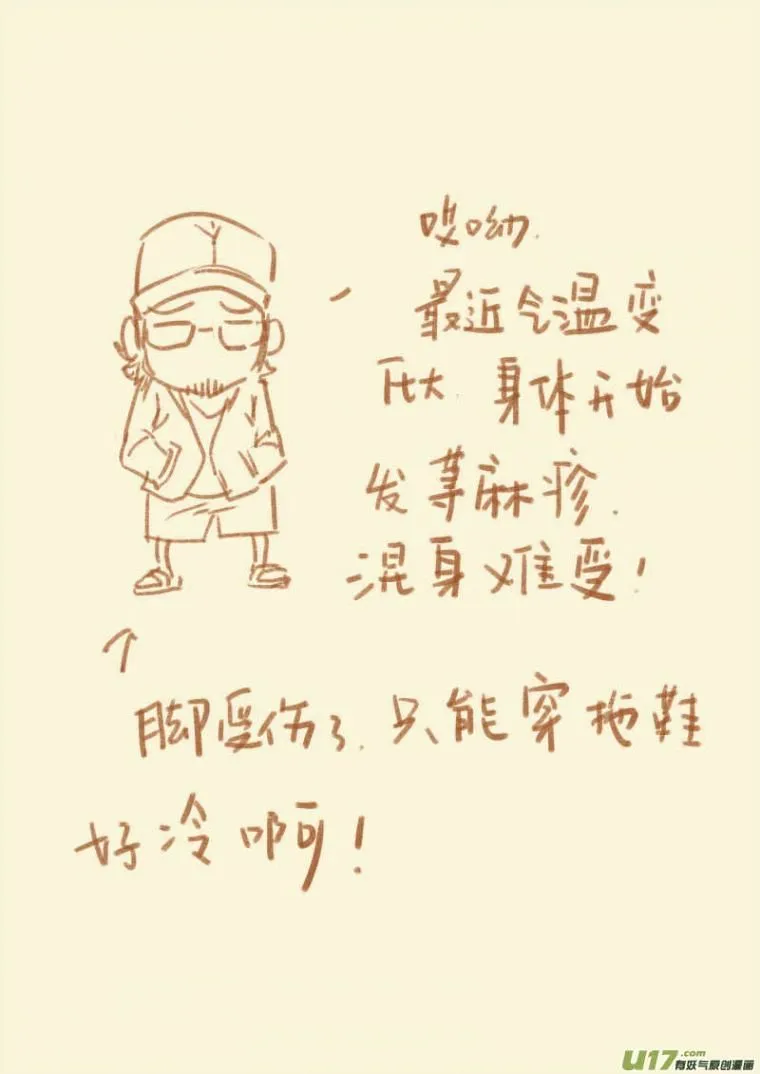 哎呦.
最近气温变
巨大.身体开始
发荨麻疹.
混身难受!
脚受伤了.只能穿拖鞋
好冷啊!
U17.com
有妖气原创漫画